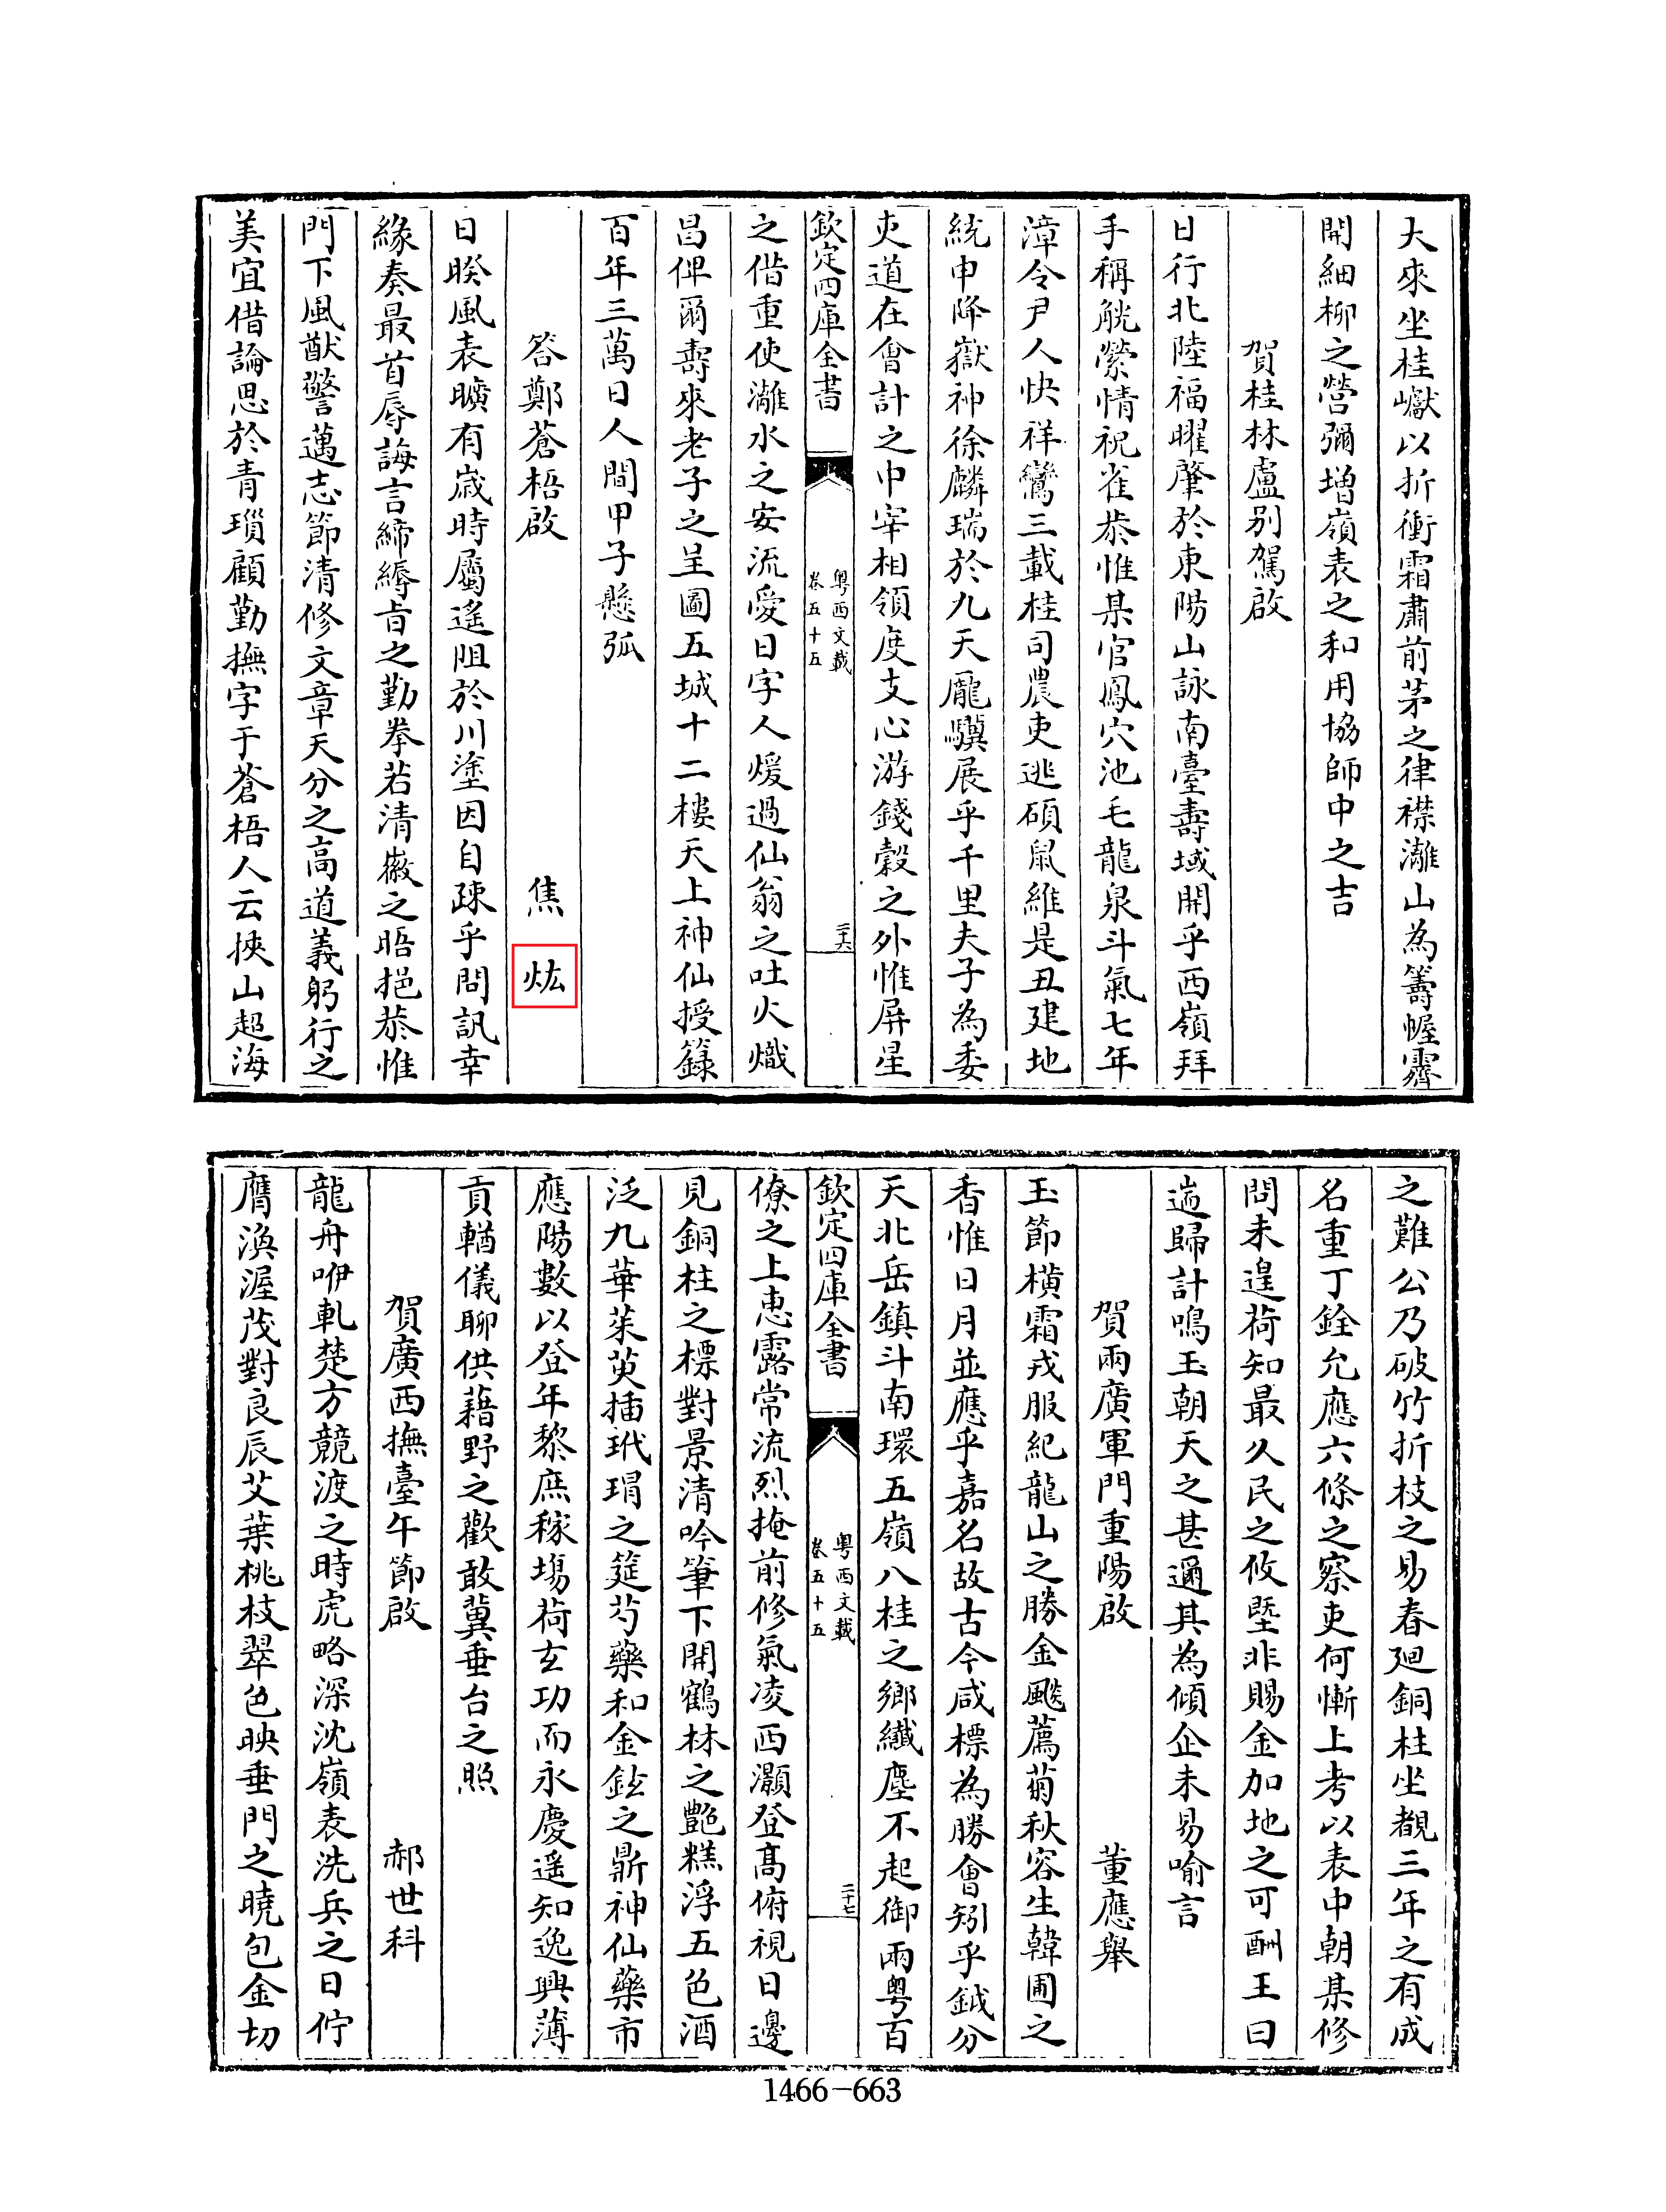 大來坐桂巘以折衝霜肅前茅之律襟灕山為籌幄霽
開細柳之營彌增嶺表之和用協師中之吉
賀桂林盧别駕啟
日行北陸福曜肇於東陽山詠南臺壽域開乎西嶺拜
手稱觥縈情祝雀恭惟某官鳳穴池毛龍泉斗氣七年
漳令尹人快祥鸞三載桂司農吏逃碩鼠維是丑建地
統申降嶽神徐麟瑞於九天龎驥展乎千里夫子為委
吏道在會計之中宰相領度支心游錢穀之外惟屏星
欽定四庫全書
粤西文載
卷五十五
二十六
之借重使灕水之安流愛日字人煖過仙翁之吐火熾
昌俾爾壽來老子之呈圖五城十二樓天上神仙授籙
百年三萬日人間甲子懸弧
答鄭蒼梧啟 焦 炫
日暌風表曠有歲時屬遙阻於川塗因自疎乎問訊幸
緣奏最首辱誨言締縟㫖之勤拳若清徽之晤挹恭惟
門下風猷警邁志節清修文章天分之高道義躬行之
美宜借論思於青瑣顧勤撫字于蒼梧人云挾山超海
之難公乃破竹折枝之易春廻銅柱坐覩三年之有成
名重丁銓允應六條之察吏何慚上考以表中朝某修
問未遑荷知最久民之攸墍非賜金加地之可酬王曰
遄歸計鳴玉朝天之甚邇其為傾企未易喻言
賀兩廣軍門重陽啟 董應舉
玉節横霜戎服紀龍山之勝金颷薦菊秋容生韓圃之
香惟日月並應乎嘉名故古今咸標為勝會矧乎鉞分
天北岳鎮斗南環五嶺八桂之鄉纎塵不起御兩粤百
欽定四庫全書
粤西文載
卷五十五
二十七
僚之上惠露常流烈掩前修氣凌西灝登髙俯視日邊
見銅柱之標對景清吟筆下開鶴林之艷糕浮五色酒
泛九華茱萸插玳瑁之筵芍藥和金鉉之鼎神仙藥市
應陽數以登年黎庶稼場荷玄功而永慶遥知逸興薄
貢輶儀聊供藉野之歡敢冀垂台之照
賀廣西撫臺午節啟 郝世科
龍舟咿軋楚方競渡之時虎略深沈嶺表洗兵之日佇
膺渙渥茂對良辰艾葉桃枝翠色映垂門之曉包金切
1466-663